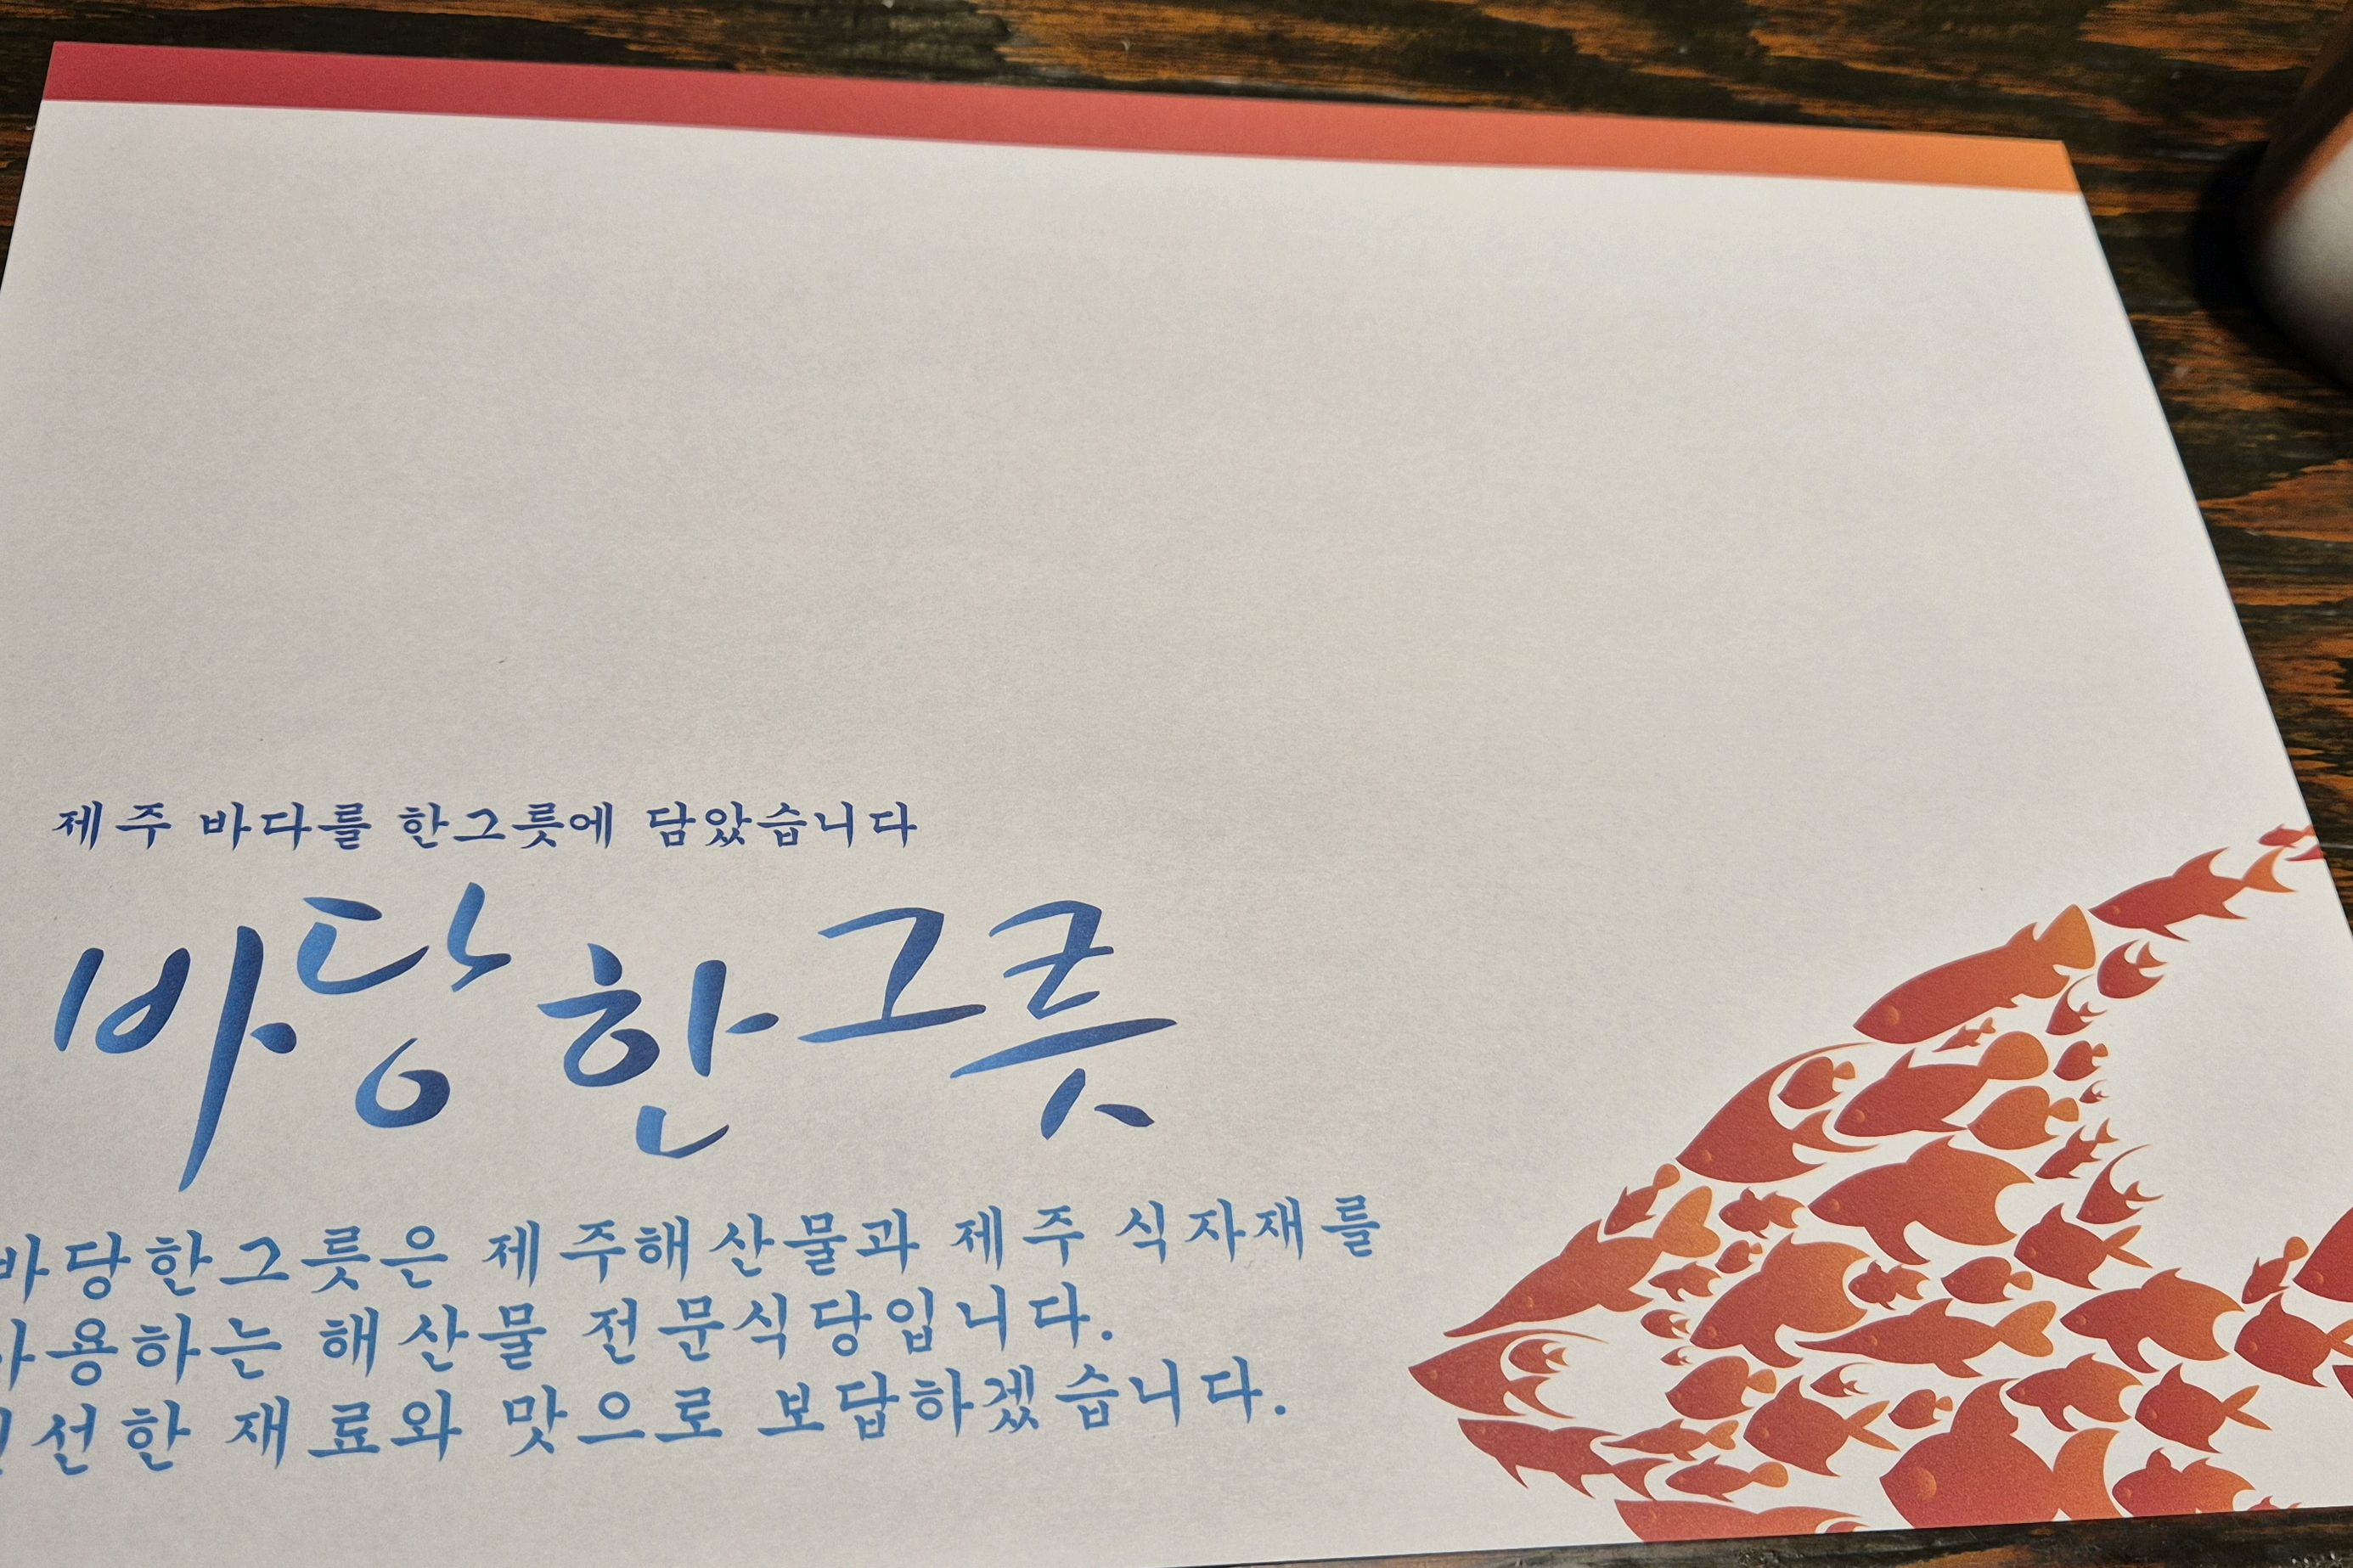 제주 바다를 한그릇에 담았습니다
바당한그릇
바당한그릇은 제주해산물과 제주 식자재를
사용하는 해산물 전문식당입니다.
신선한 재료와 맛으로 보답하겠습니다.